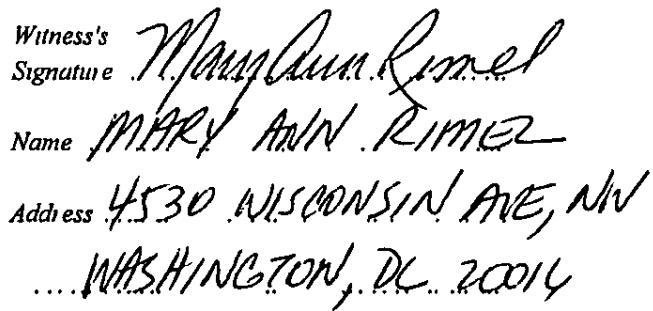 Witness's
Signature Mary Ann Rimel
Name MARY ANN RIMEL
Address 4530 WISCONSIN AVE, NW
WASHINGTON, DC 20016